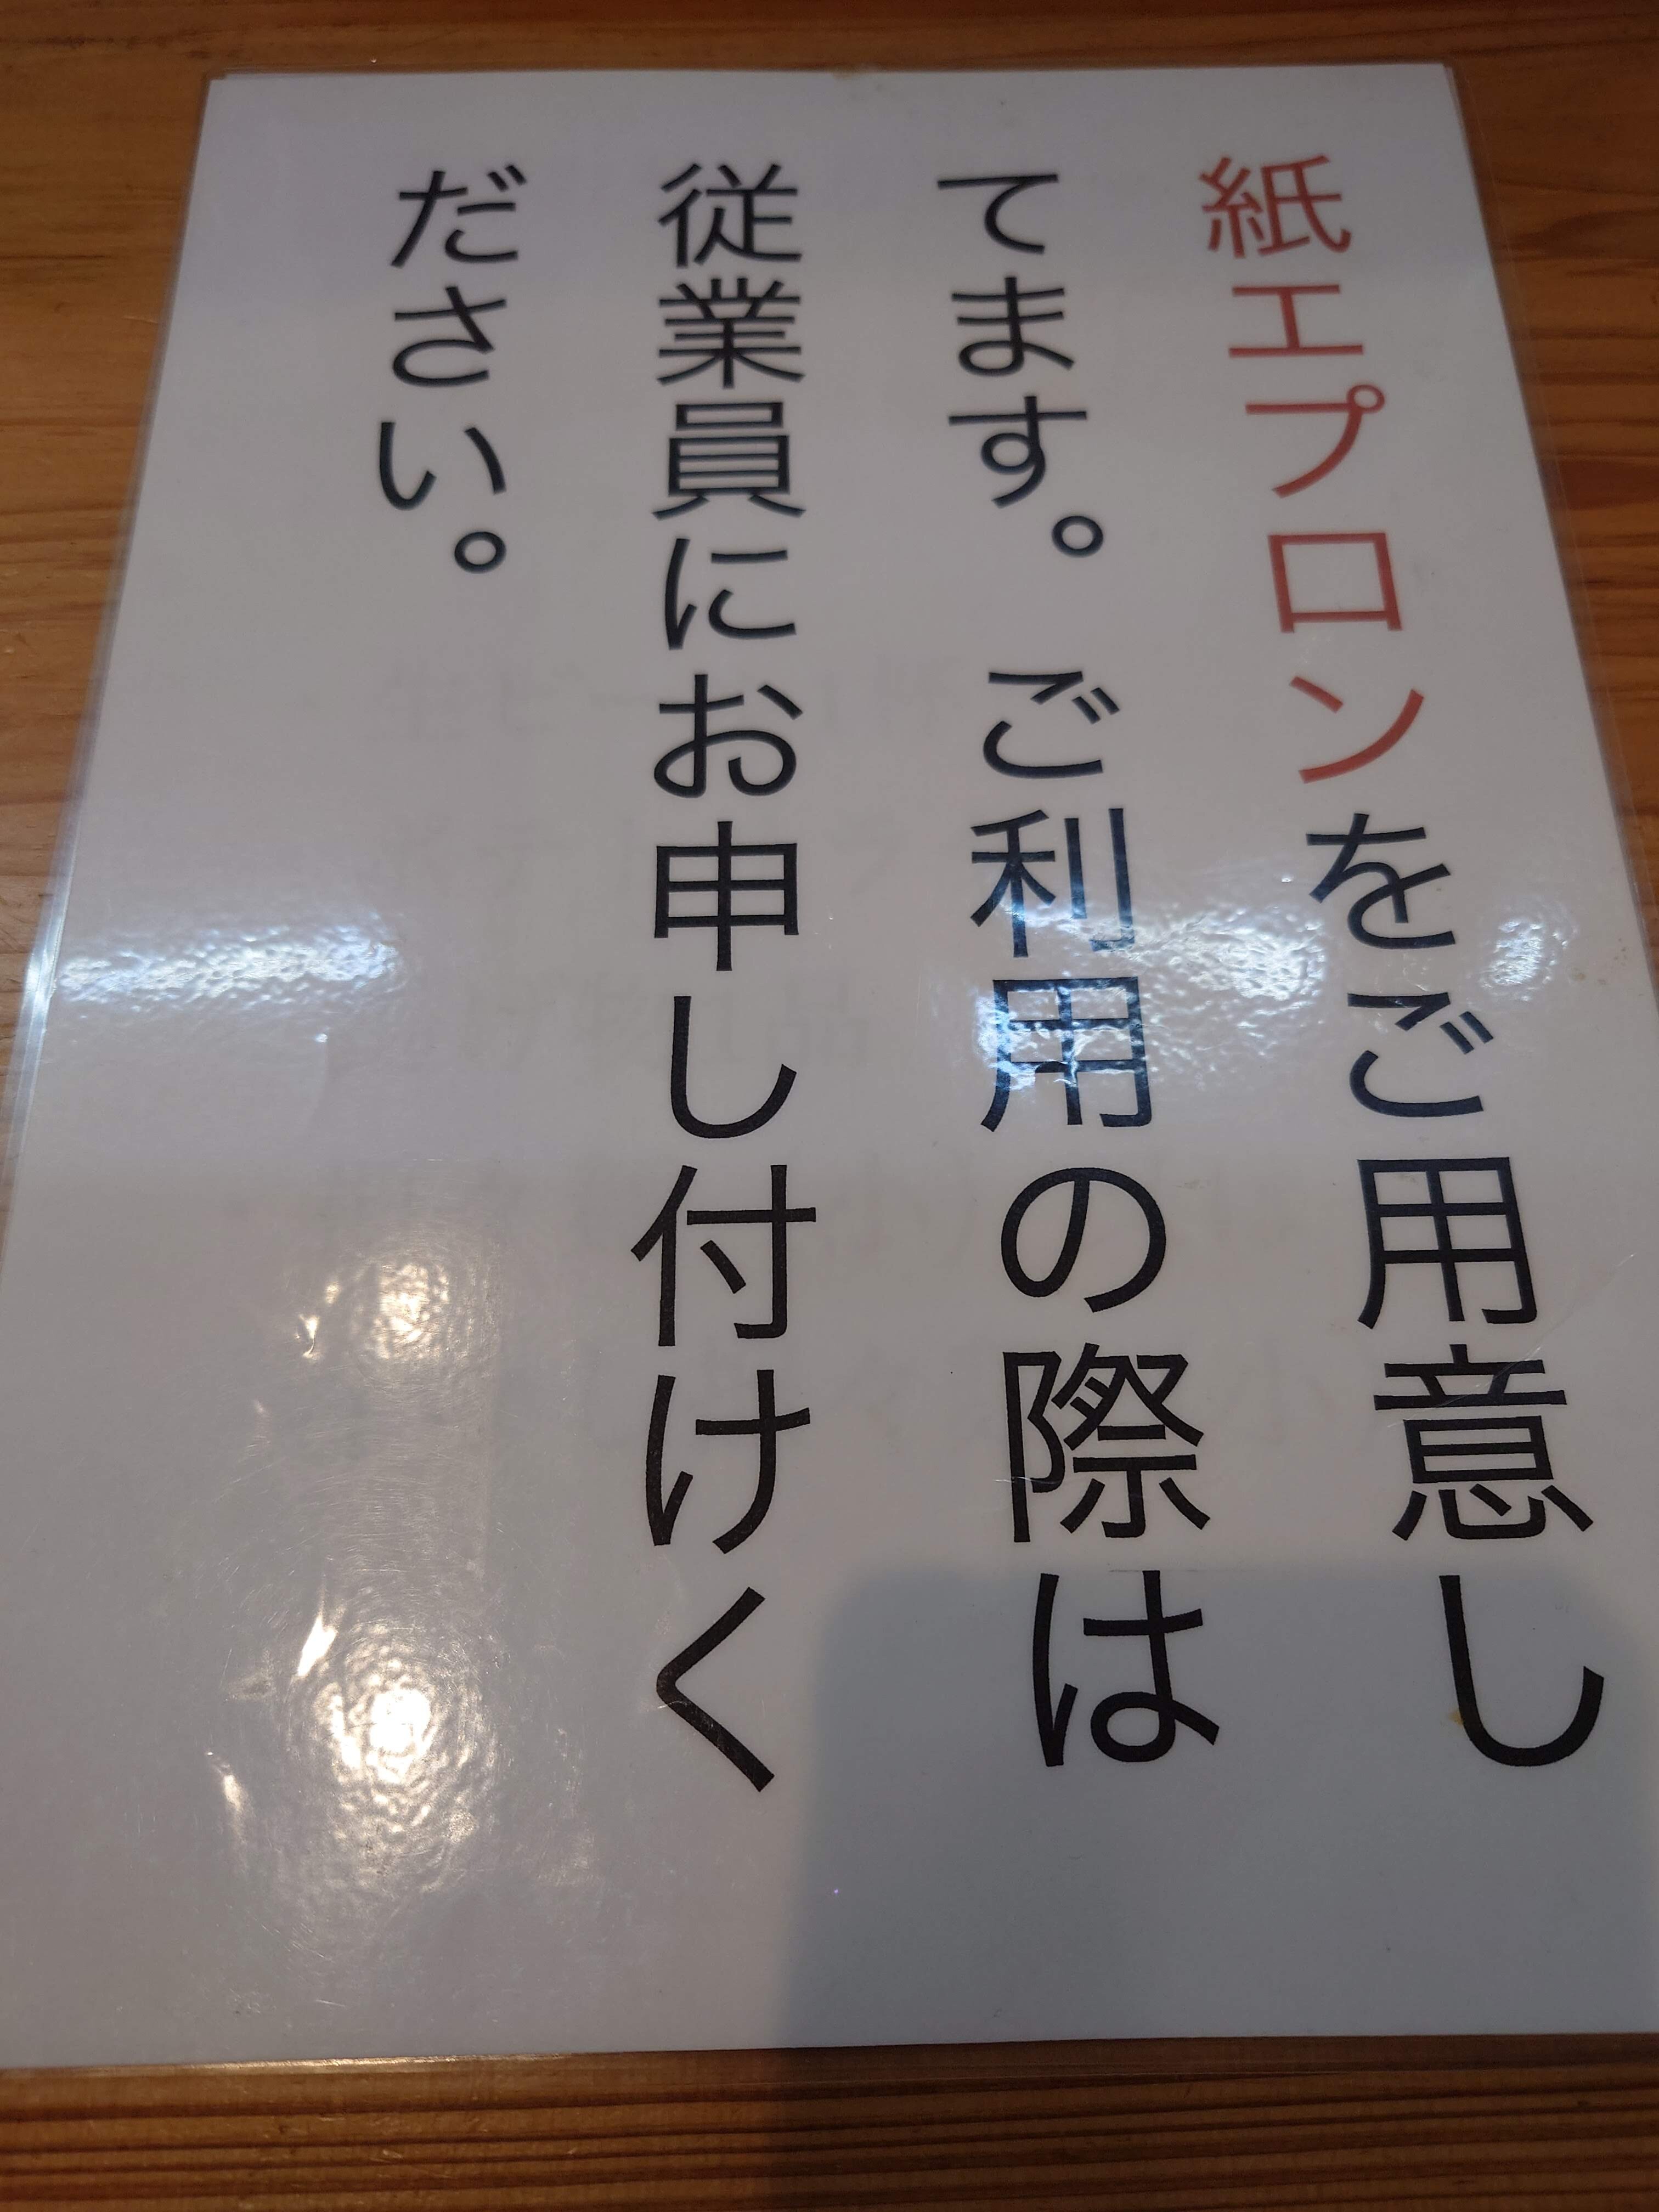 紙エプロンをご用意し
てます。ご利用の際は
従業員にお申し付けく
ださい。